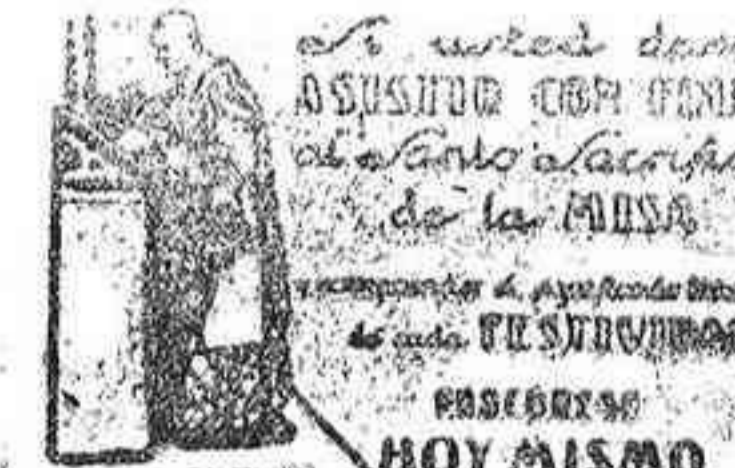 Si usted desea
ASISTIR CON
al Santo Sacrificio
de la MISA
y comprender el significado
de cada FESTIVIDAD
SUSCRIBASE
HOY MISMO